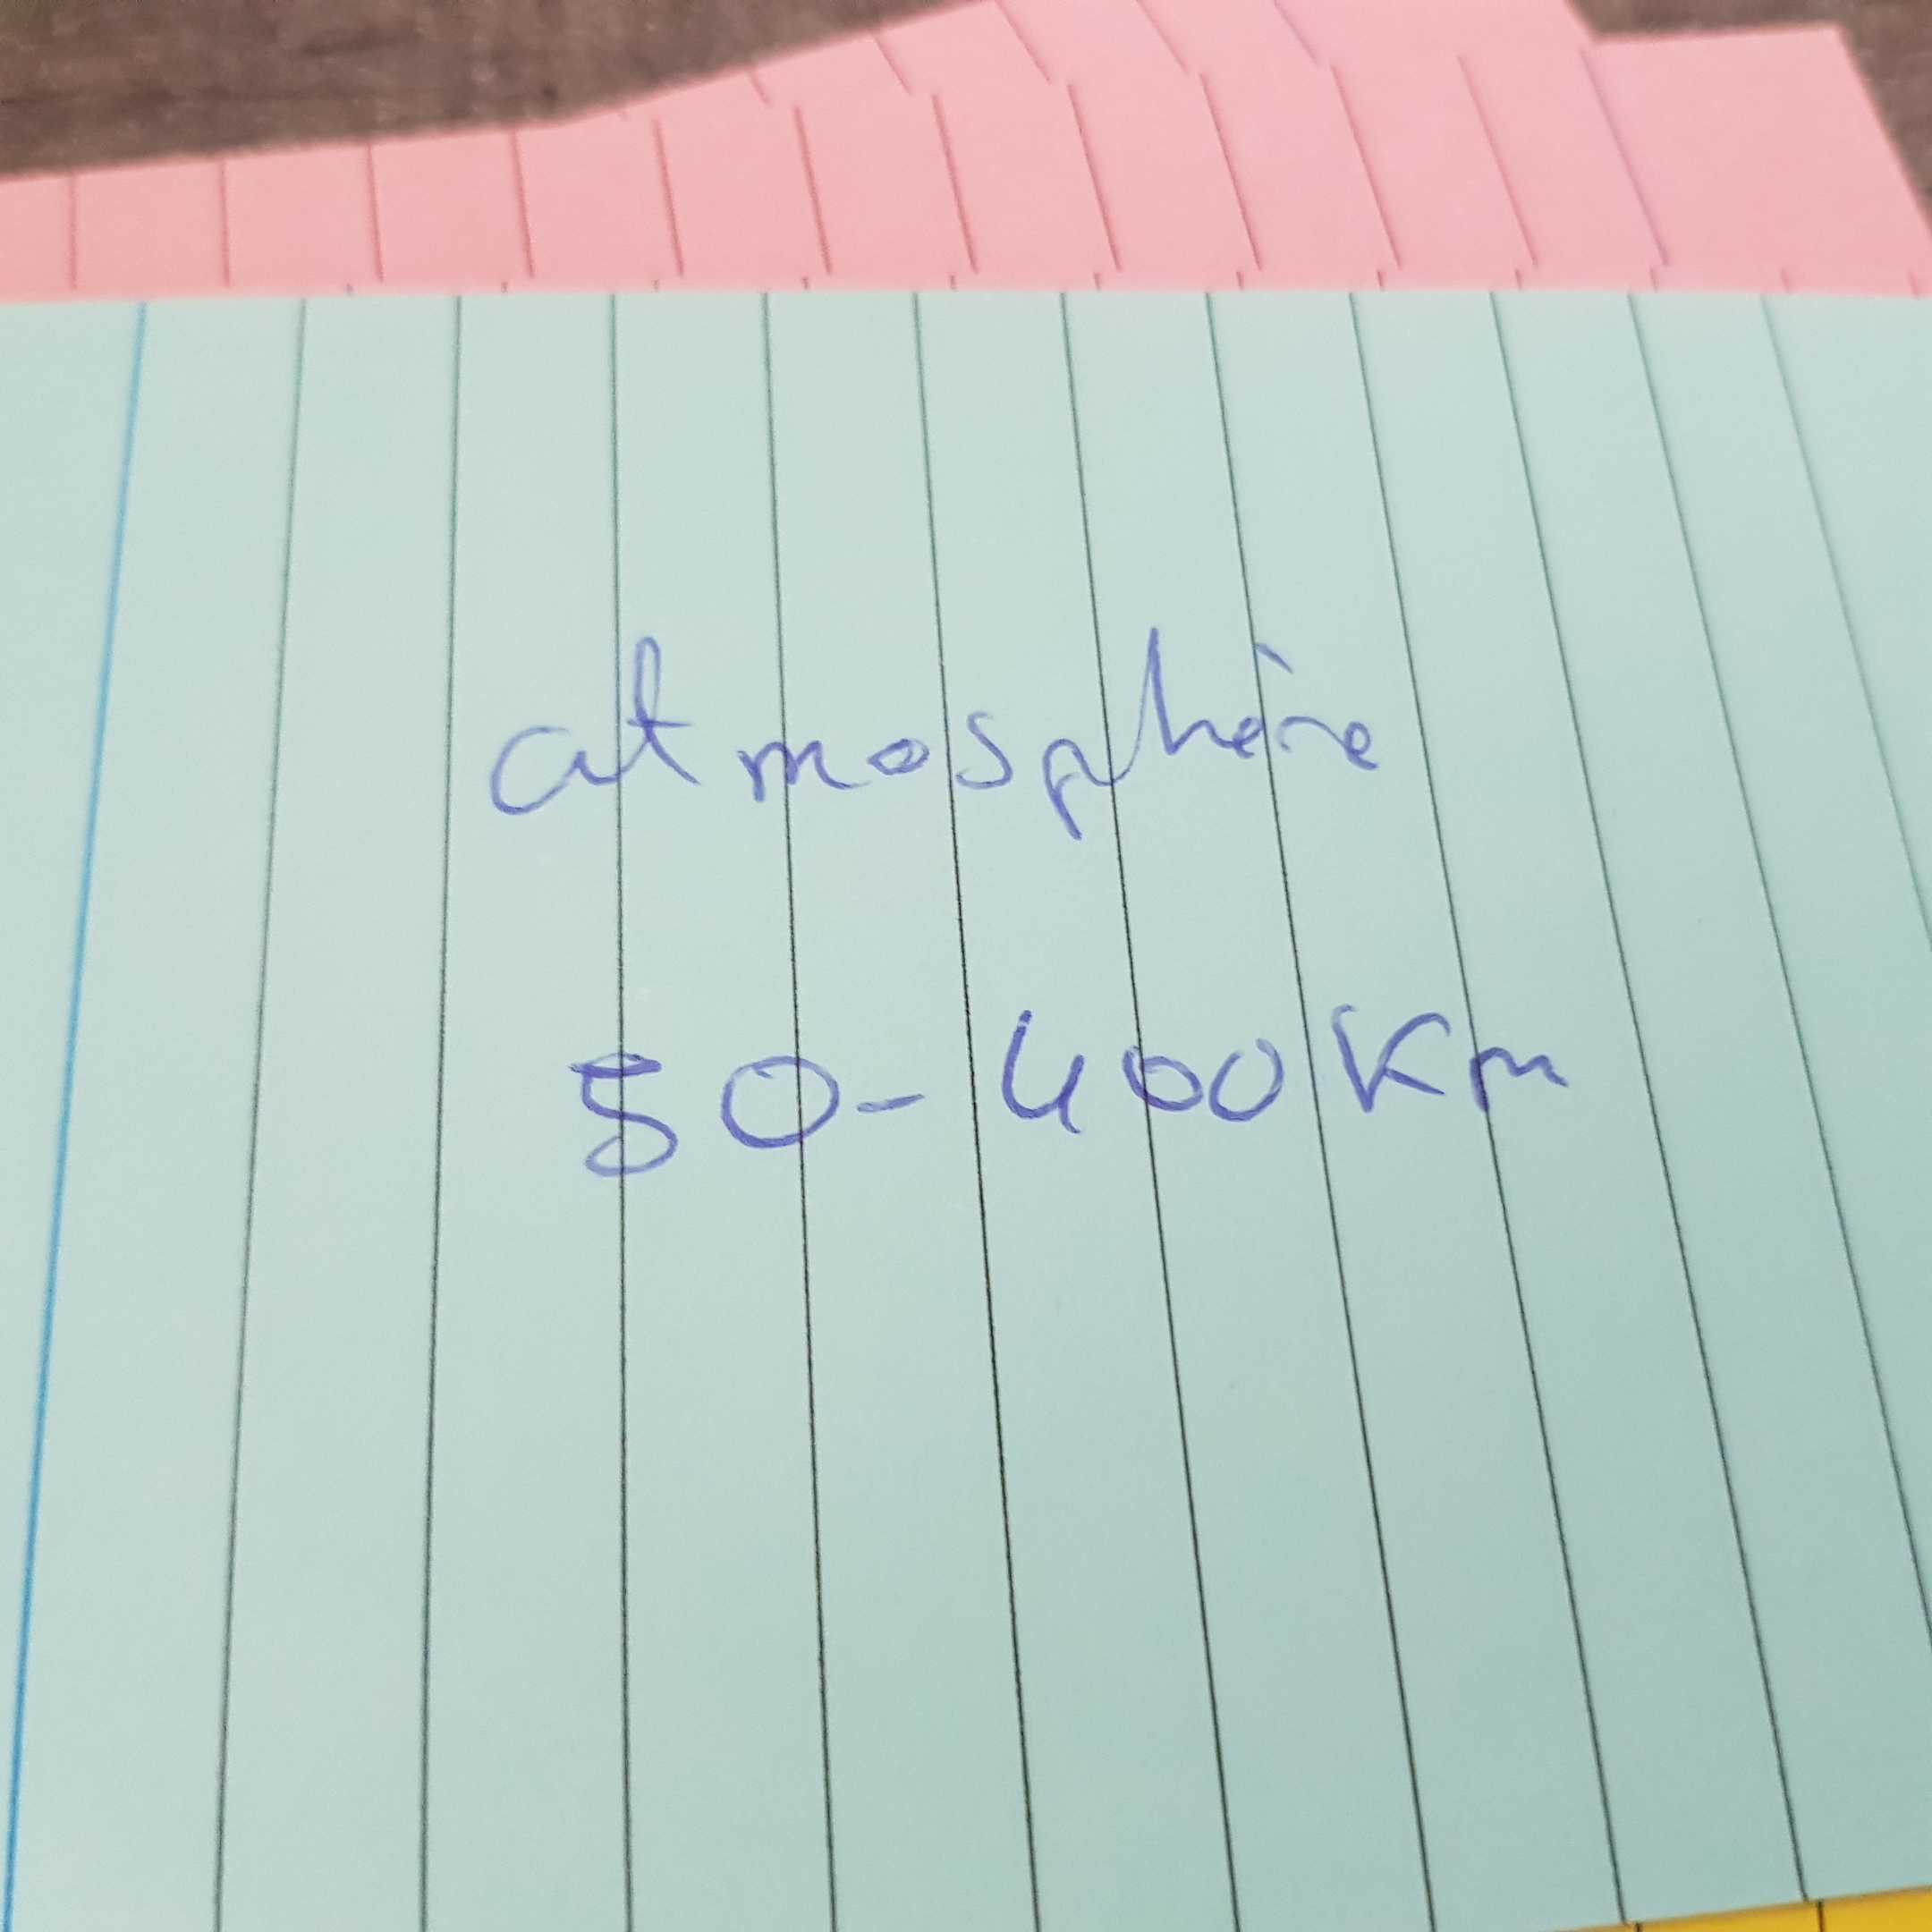 atmosphère
50-400 Km